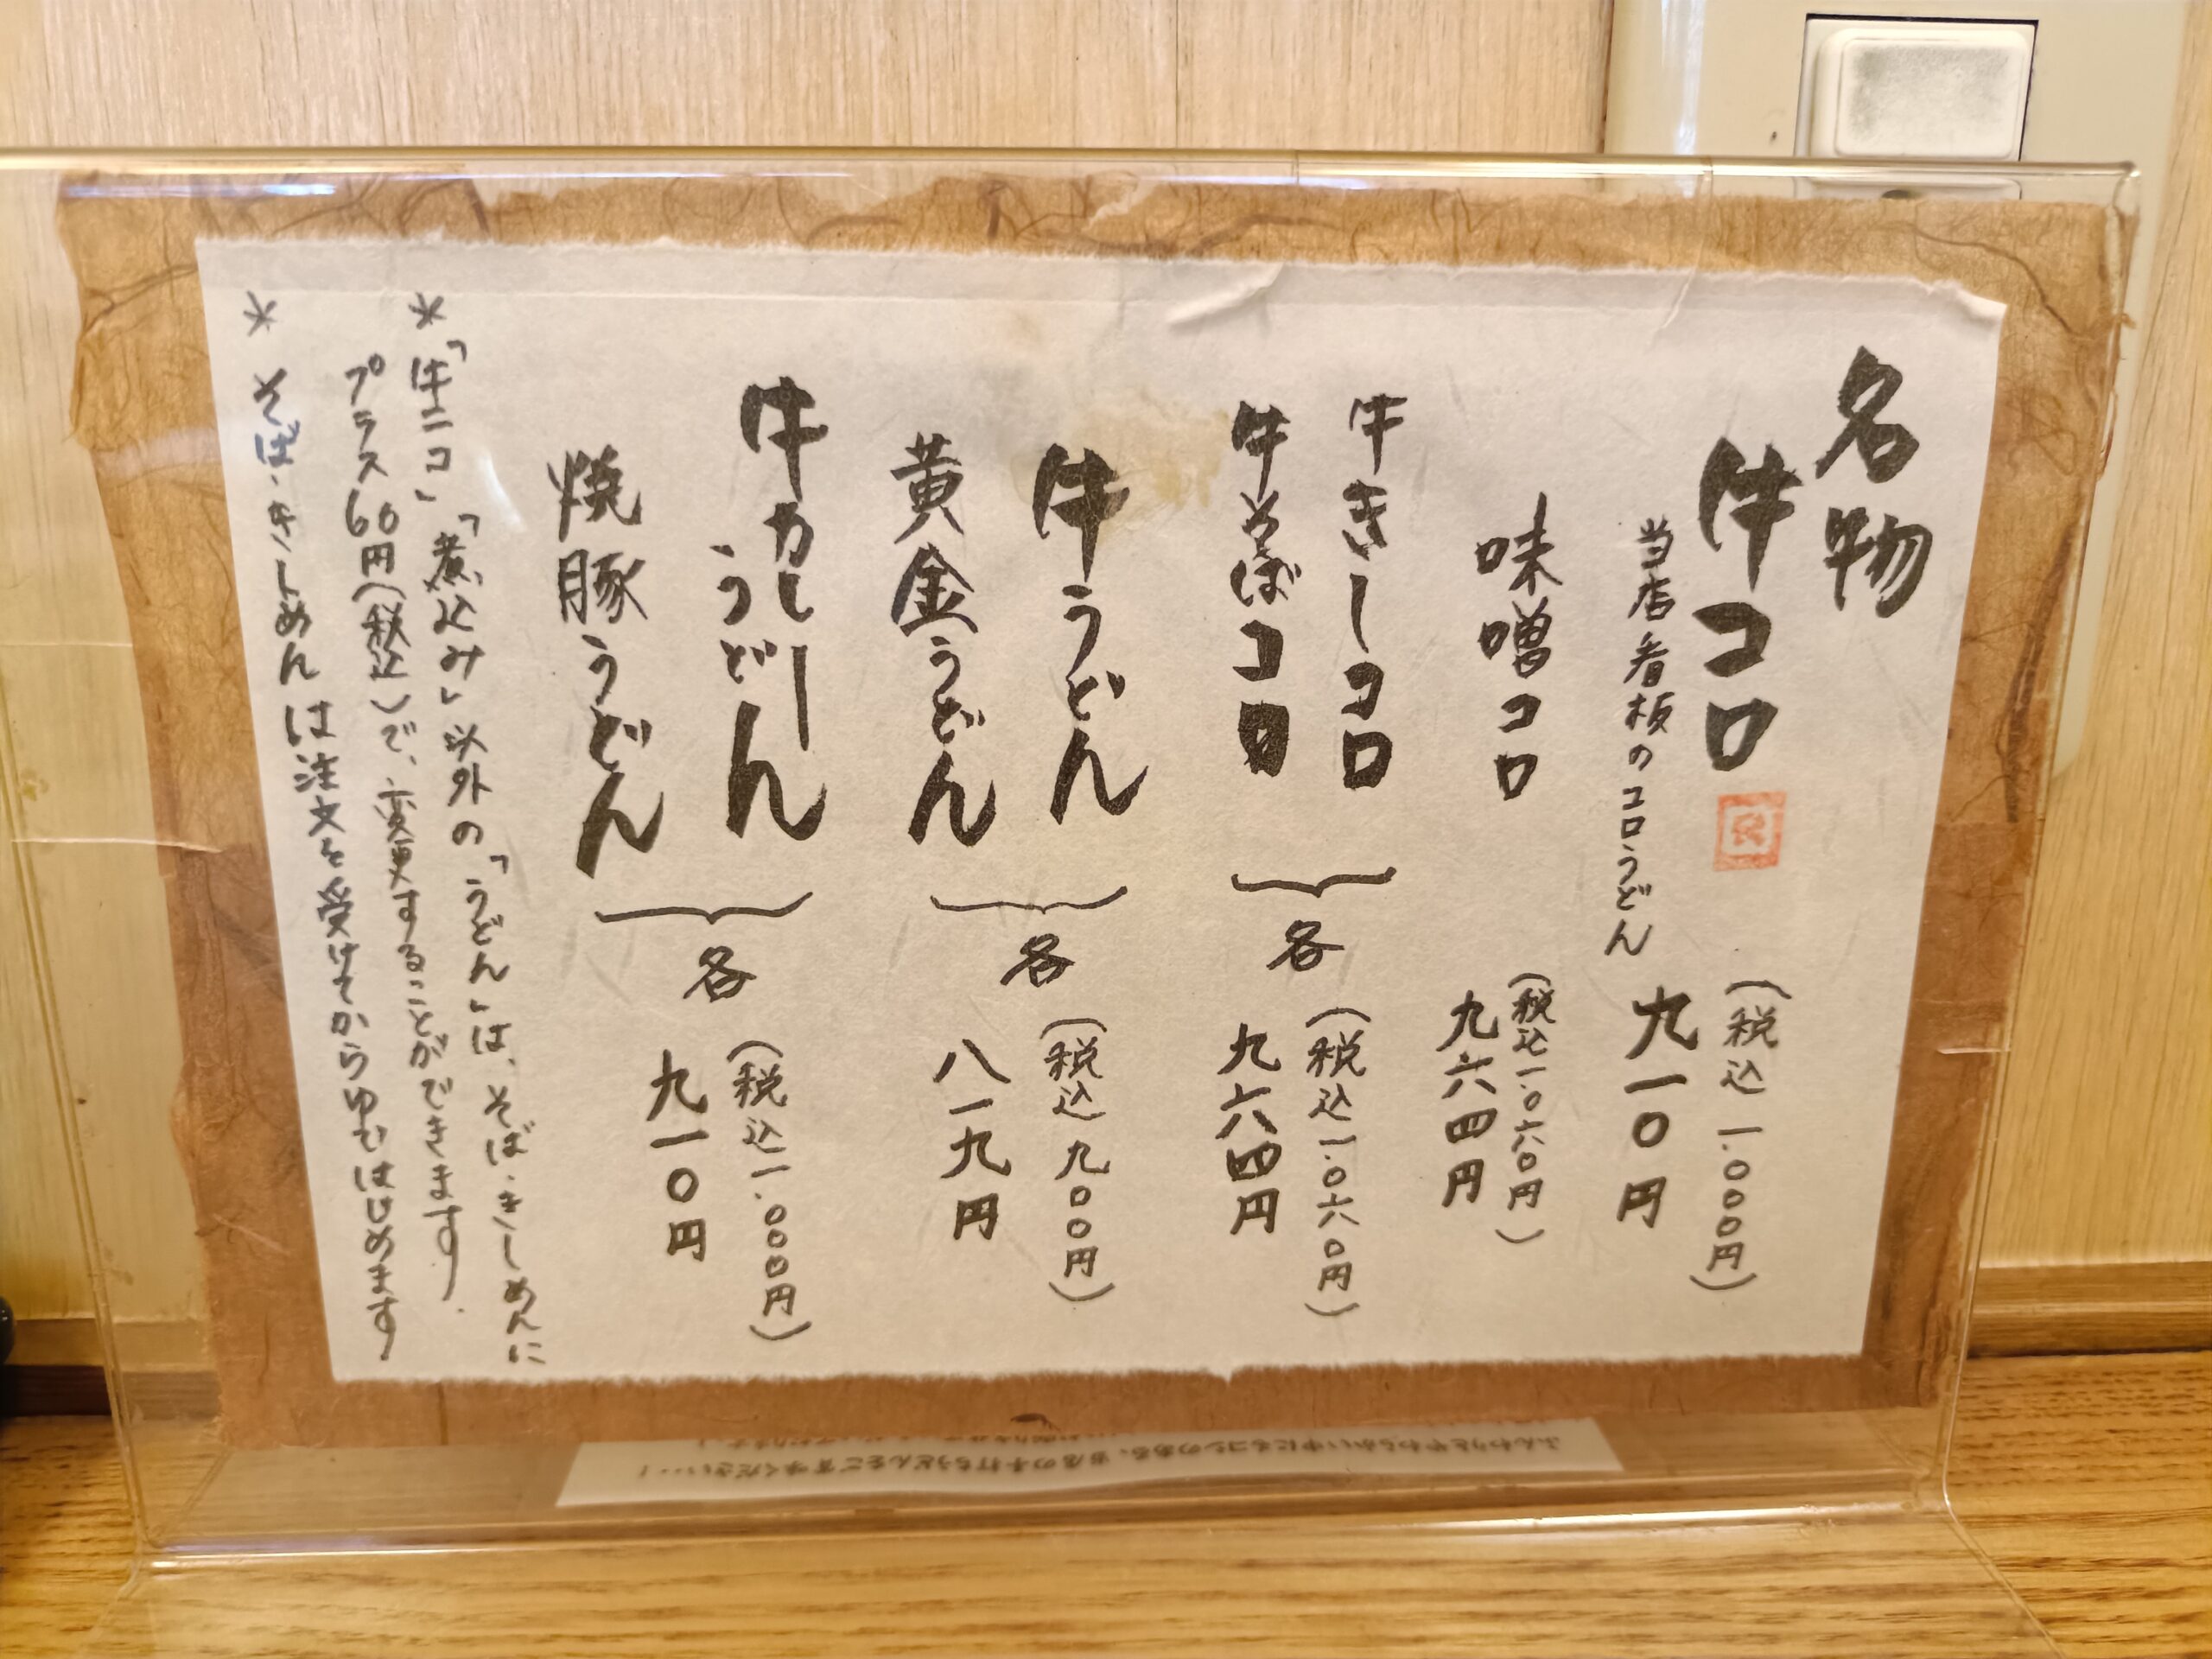 名物
牛コロ
当店看板のコロうどん
(税込 一.〇〇〇円)
九一〇円
味噌コロ
(税込 一.〇六〇円)
九六四円
牛きしコロ
牛そばコロ
各
(税込 一.〇六〇円)
九六四円
牛うどん
黄金うどん
各
(税込 九〇〇円)
八一九円
牛カレーうどん
焼豚うどん
各
(税込 一.〇〇〇円)
九一〇円
*「牛ニコ」「煮込み」以外の「うどん」は、そば・きしめんに
プラス60円(税込)で、変更することができます.
* そば・きしめんは注文を受けてからゆではじめます